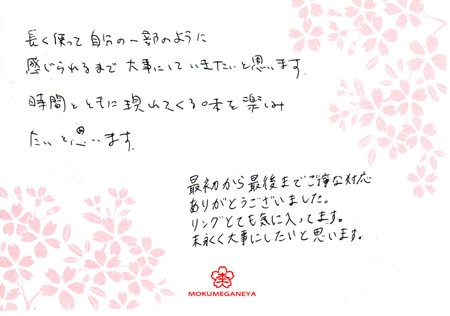 長く使って自分の一部のように
感じられるまで大事にしていきたいと思います。
時間とともに現れてくる味を楽しみ
たいと思います。
最初から最後までご丁寧な対応
ありがとうございました。
リングとても気に入ってます。
末永く大事にしたいと思います。
MOKUMEGANEYA